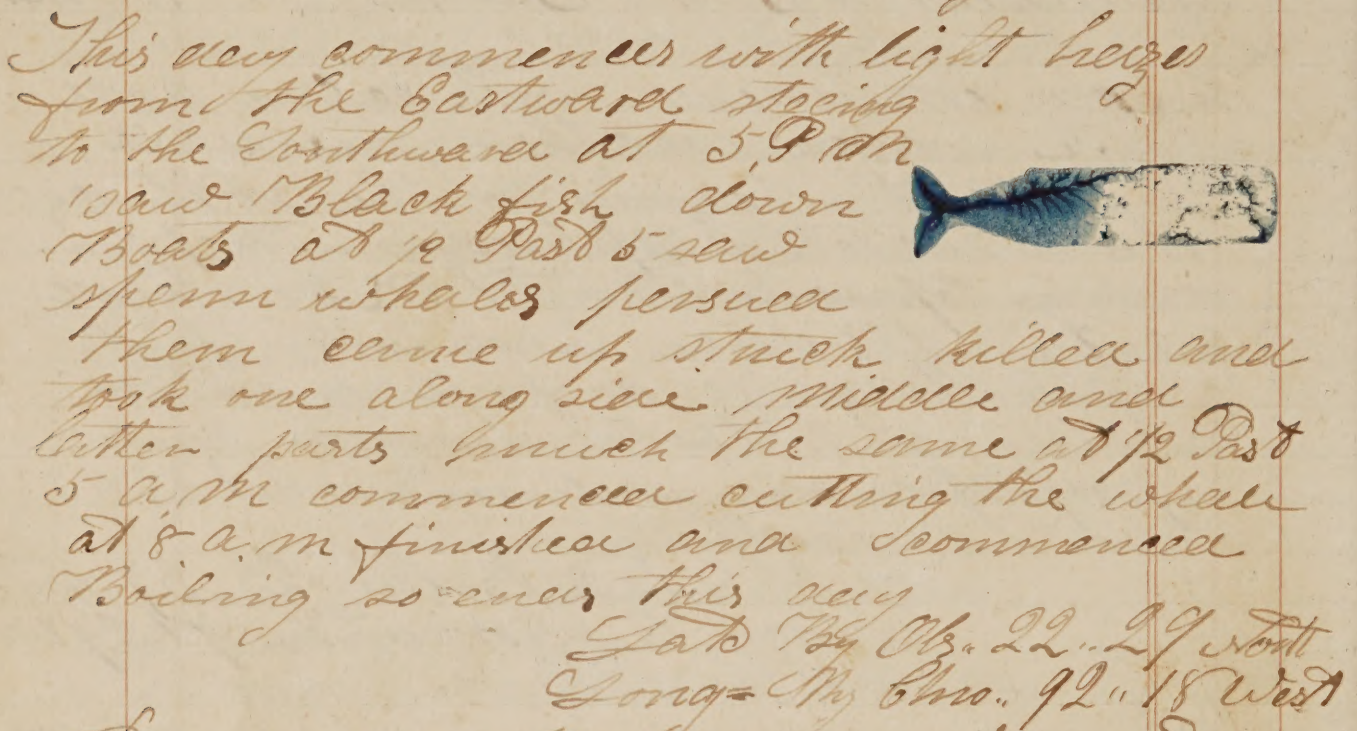 This day commences with light breizes
from the Eastward steeing
to the Southward at 5 P M
saw Black fish down
Boats at ½ Past 5 saw
sperm whales persued
them came up struck killed and
took one along side middle and
latter parts much the same at ½ Past
5 a m commenced cutting the whale
at 8 a.m finished and commenced
Boiling so ends this day
Lat By Obs.. 22..29 North
Long= By Chro.. 92..18 West